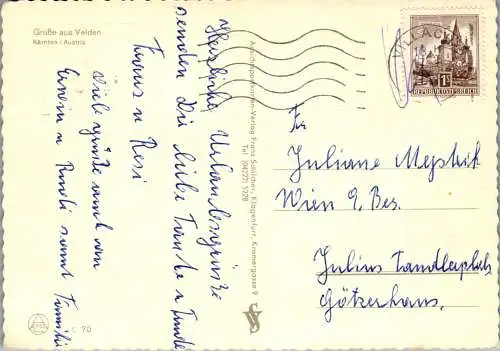 Grüße aus Velden
Kärnten / Austria
Herzliche Urlaubsgrüße
senden Dir liebe Tante u
Franz u Resi
Viele Grüße samt
Erwin u Rudi samt Familie
Ansichtspostkarten-Verlag Franz Schilcher, Klagenfurt, Kramergasse 9
Tel. (04222) 5728
VILLACH
1S
REPUBLIK ÖSTERREICH
Fa
Juliane Mejstrik
Wien 9. Bez.
Julius Tandlerplatz
Götzerhaus.
70